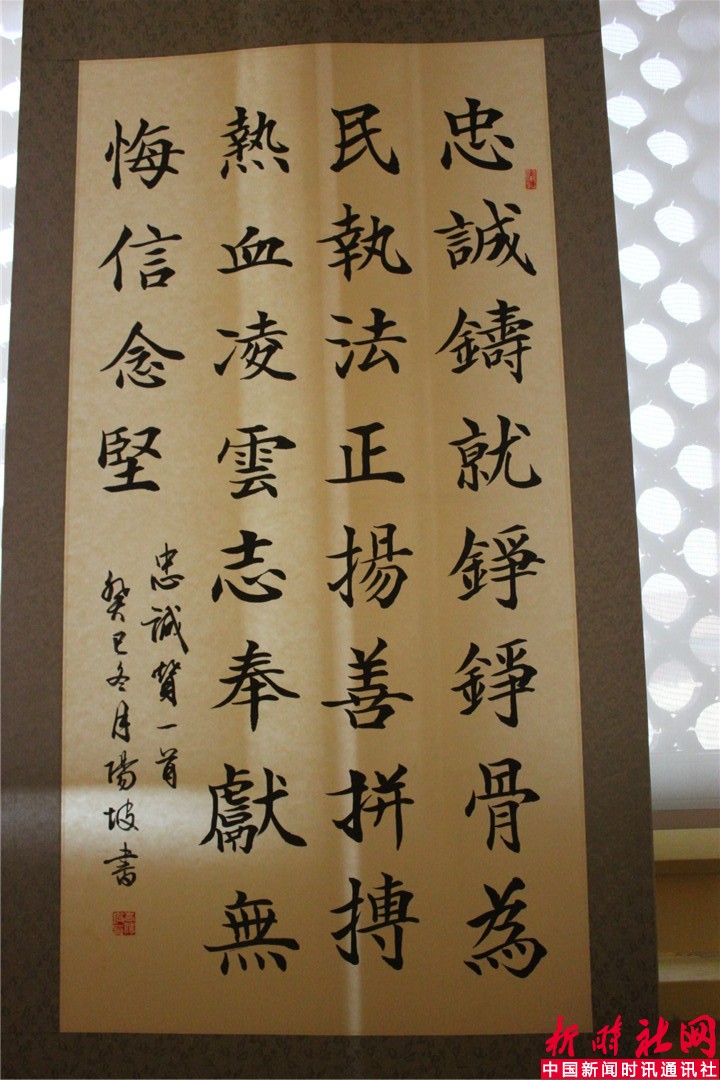 忠誠鑄就錚錚骨為
民執法正揚善拼搏
熱血凌雲志奉獻無
悔信念堅
忠誠贊一首
癸巳冬月陽坡書
新时社网
中国新闻时讯通讯社